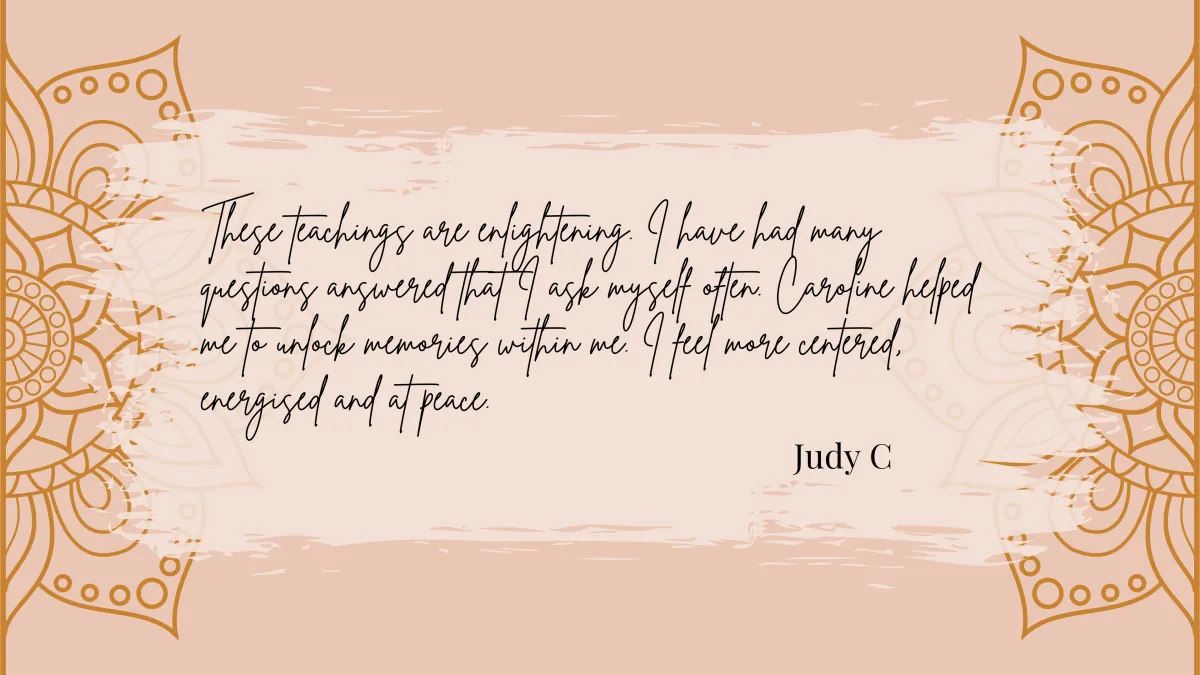 These teachings are enlightening. I have had many
questions answered that I ask myself often. Caroline helped
me to unlock memories within me. I feel more centered,
energised and at peace.
Judy C